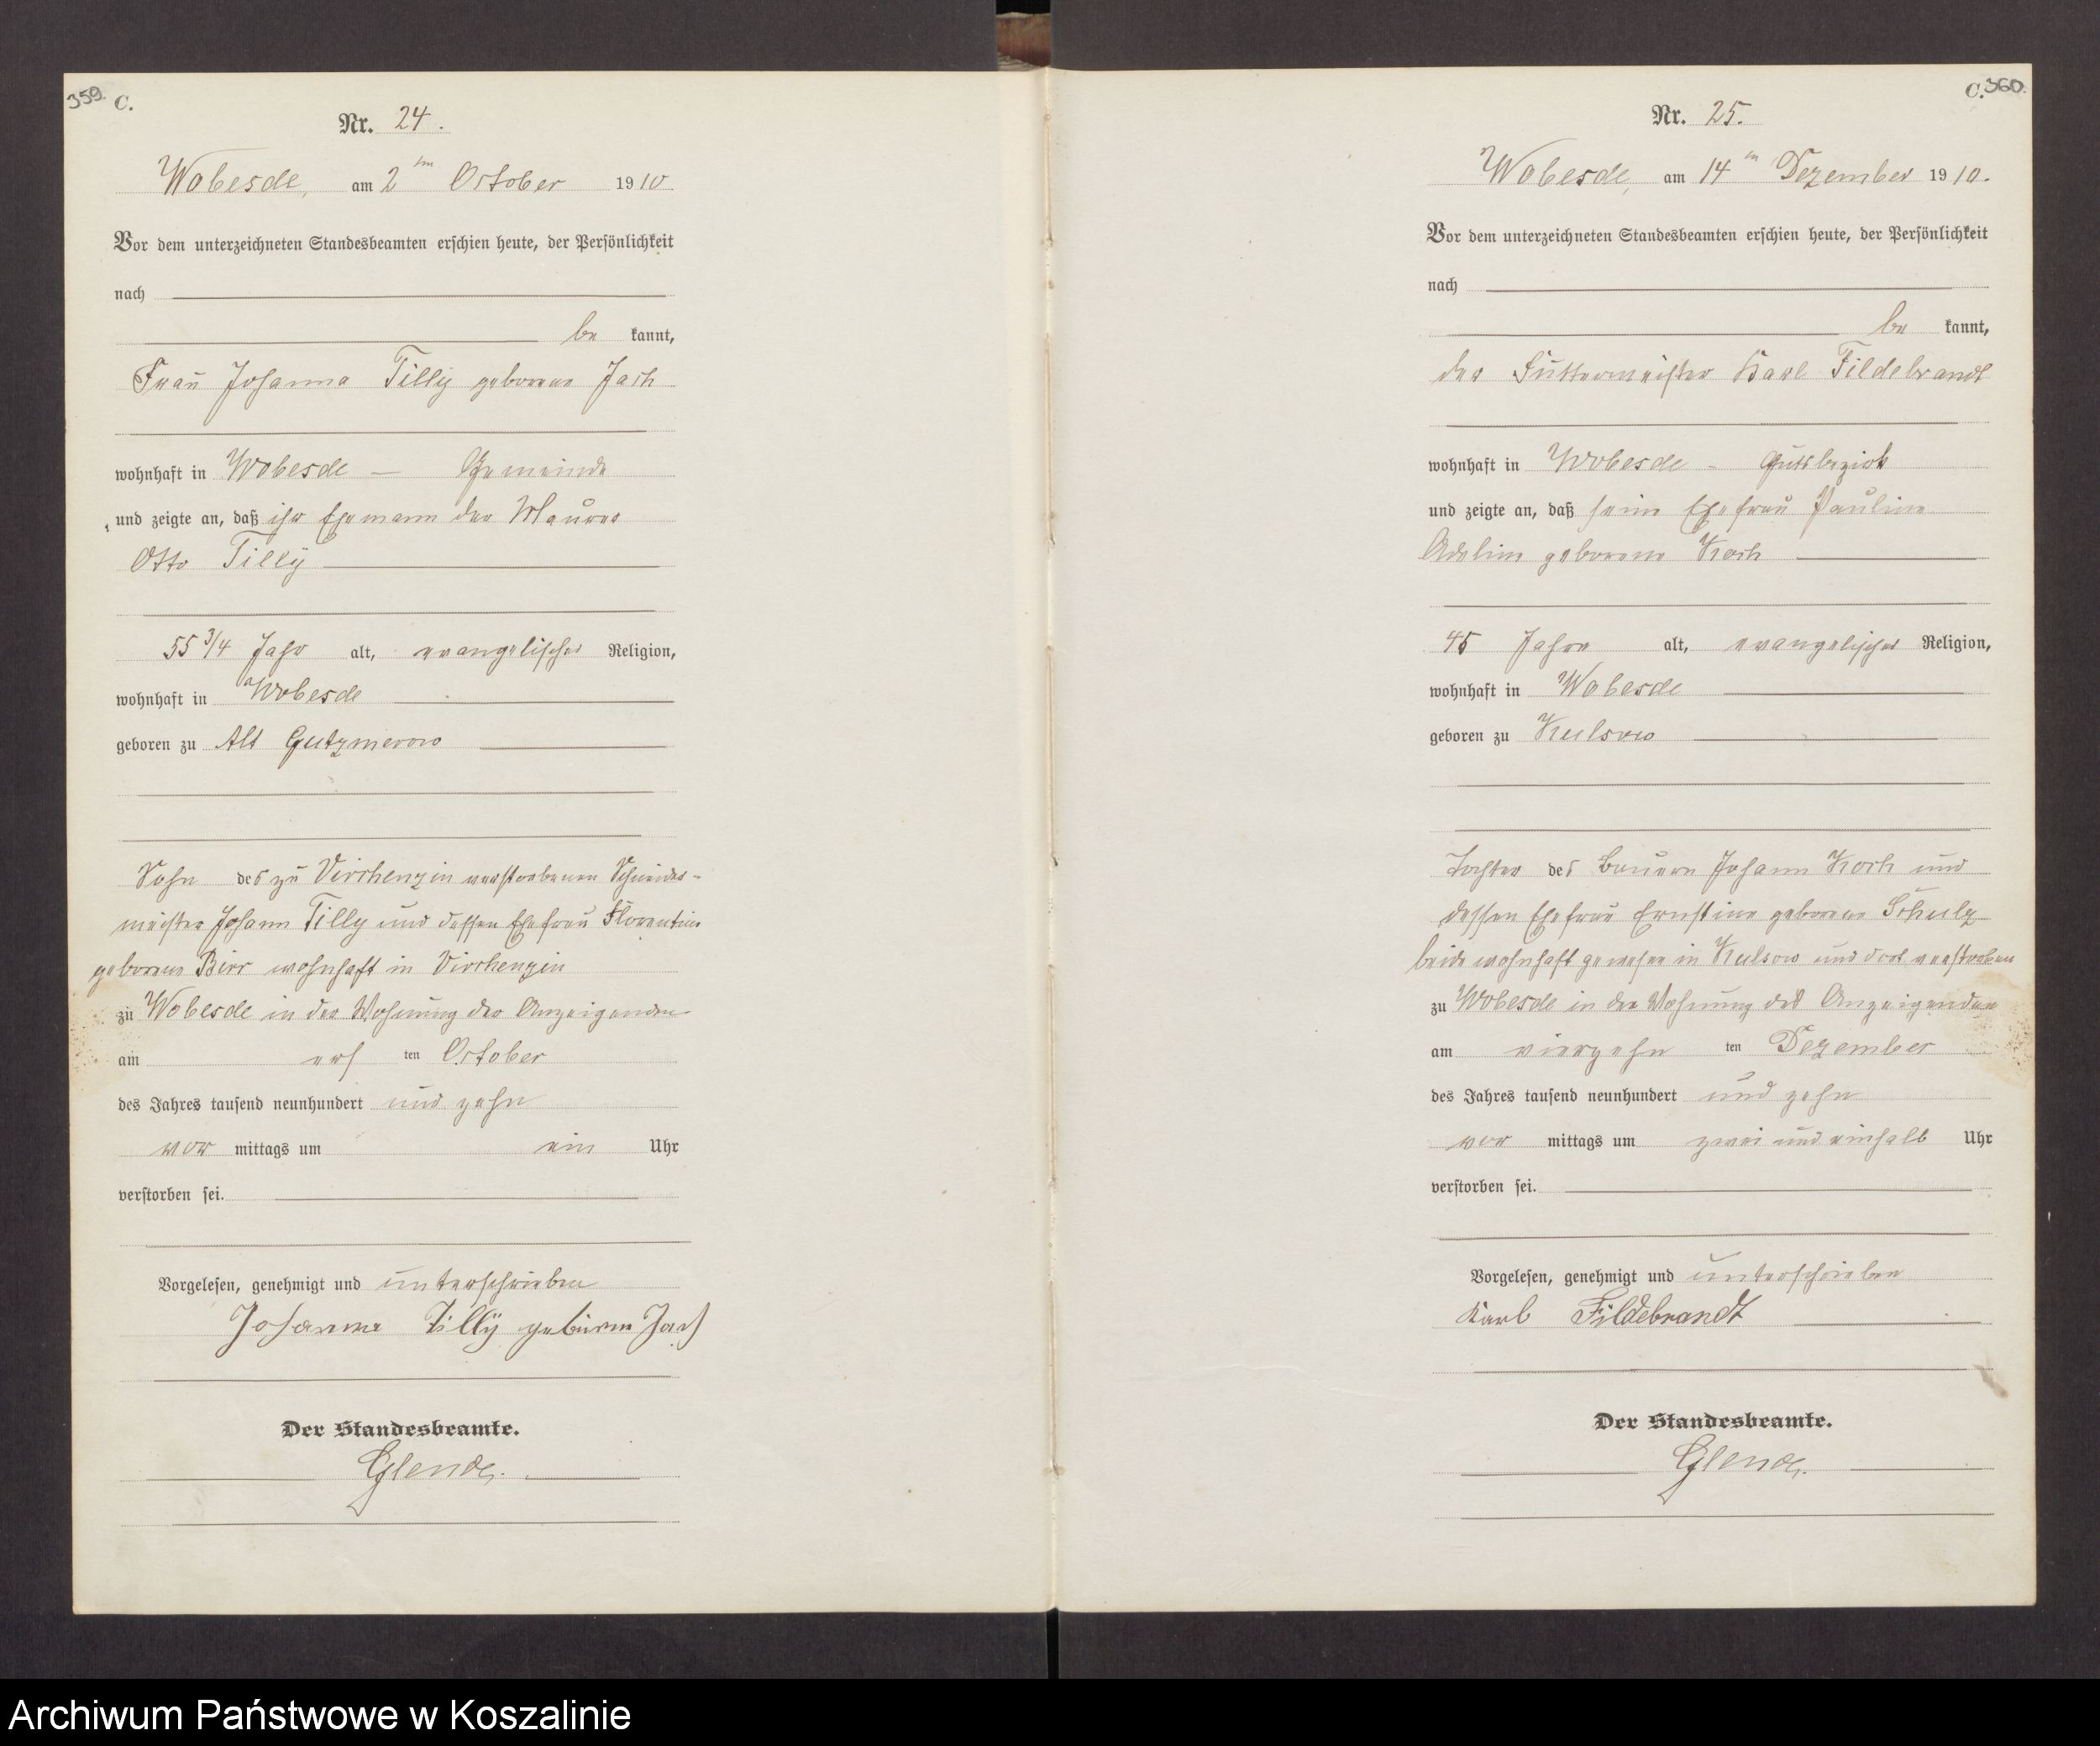 359.
C.
Nr. 24.
Wobesde, am 2ten October 1910.
Vor dem unterzeichneten Standesbeamten erschien heute, der Persönlichkeit
nach
be kannt,
Frau Johanna Tilly geborene Jach
wohnhaft in Wobesde — Gemeinde
und zeigte an, daß ihr Ehemann der Maurer
Otto Tilly
55 3/4 Jahr alt, evangelischer Religion,
wohnhaft in Wobesde
geboren zu Alt Gutzmerow
Sohn des zu Virchenzin verstorbenen Schneider-
meister Johann Tilly und dessen Ehefrau Florentine
geborene Birr wohnhaft in Virchenzin
zu Wobesde in der Wohnung der Anzeigenden
am ers ten October
des Jahres tausend neunhundert und zehn
vor mittags um ein Uhr
verstorben sei.
Vorgelesen, genehmigt und unterschrieben
Johanna Tilly geborene Jach
Der Standesbeamte.
Glende.
C. 360.
Nr. 25.
Wobesde, am 14ten Dezember 1910.
Vor dem unterzeichneten Standesbeamten erschien heute, der Persönlichkeit
nach
be kannt,
der Futtermeister Karl Fildebrandt
wohnhaft in Wobesde - Gutsbezirk
und zeigte an, daß seine Ehefrau Pauline
Adeline geborene Koch
45 Jahre alt, evangelischer Religion,
wohnhaft in Wobesde
geboren zu Kulsow
Tochter des Bauern Johann Koch und
dessen Ehefrau Ernstine geborene Schulz
beide wohnhaft gewesen in Kulsow und dort verstorben
zu Wobesde in der Wohnung des Anzeigenden
am vierzehn ten Dezember
des Jahres tausend neunhundert und zehn
vor mittags um zwei und einhalb Uhr
verstorben sei.
Vorgelesen, genehmigt und unterschrieben
Karl Fildebrandt
Der Standesbeamte.
Glende.
Archiwum Państwowe w Koszalinie